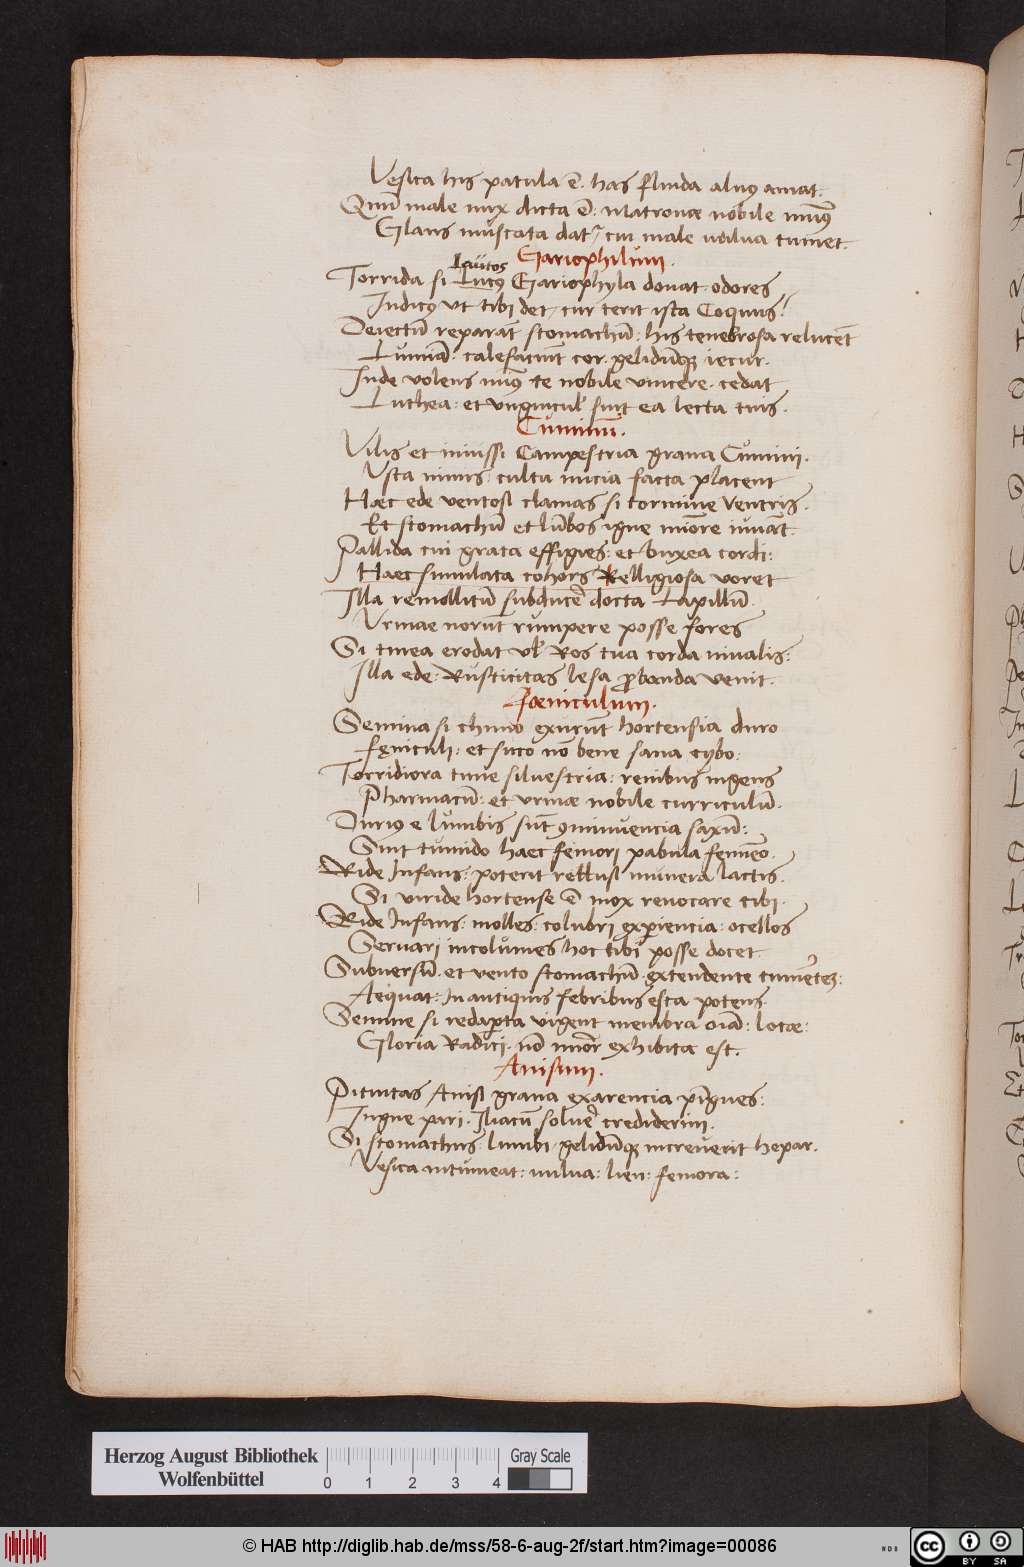 Vesica his patula ē. has fluida aluꝰ amat.
Qum̄ male nux dicta ē: Matronæ nobile munꝰ
Glans muscata dat᷑ cui male uulua tumet.
Gariophilum.
Lautos
Torrida si Lucꝰ Gariophyla donat odores
Indicꝰ vt tibi det, cur terit ista Coquus?
Deiectū reparāt stomachū: his tenebrosa relucēt
Lumīa: calefaciūt cor. gelidūqꝫ iecur.
Inde volens munꝰ te nobile vincere. cedat
Luthea: et vnguicul᷑ sint ea lecta tuis.
Cuminū.
Vilis et iniussi Campestria grana Cumini.
Vsta nimis: cultu micia facta placent
Haec ede ventosi clamas si tormine Ventris.
Et stomachū et lūbos igne minōre iuuāt.
Pallida cui grata effigies: et buxea cordi:
Haec simulata cohors Relligiosa voret
Illa remollitū subducer̄ docta Lapillū.
Vrinae norūt rumpere posse fores
Si tinea erodat vl᷑ Ros tua corda niualis:
Illa ede: Rusticitas lesa ꝓbanda venit.
Fœniculum.
Semina si chimo exurūt hortensia duro
fęniculi: et suco nō bene sana cybo:
Torridiora tine siluestria: renibus ingens
Pharmacū: et vrinæ nobile curriculū.
Duriꝰ e lumbis sūt ꝯminuencia saxū:
Sint tumido haec femori pabula femīeo.
Ride Infans: poterit rellusi munera lactis.
Si viride hortense ē mox renocare tibi.
Ride Infans: molles: colubri exꝑiencia: ocellos
Seruari incolumes hoc tibi posse docet.
Subuersū. et vento stomachū extendente tumēteꝫ:
Aequat: In antiquis febribus esca potens.
Semine si redaperta vigent membra oīa: lotæ:
Gloria Radici. nō minor exhibita est.
Anisum.
Pituitas Anisi grana exarencia pīgues:
Ingne pari. Iliacū soluer̄ crediderim.
Si stomachus: lumbi. gelidūqꝫ increuerit hepar.
Vesica intumeat: uulua: lien: femora:
Herzog August Bibliothek
Wolfenbüttel
0 1 2 3 4
Gray Scale
© HAB http://diglib.hab.de/mss/58-6-aug-2f/start.htm?image=00086
cc BY SA